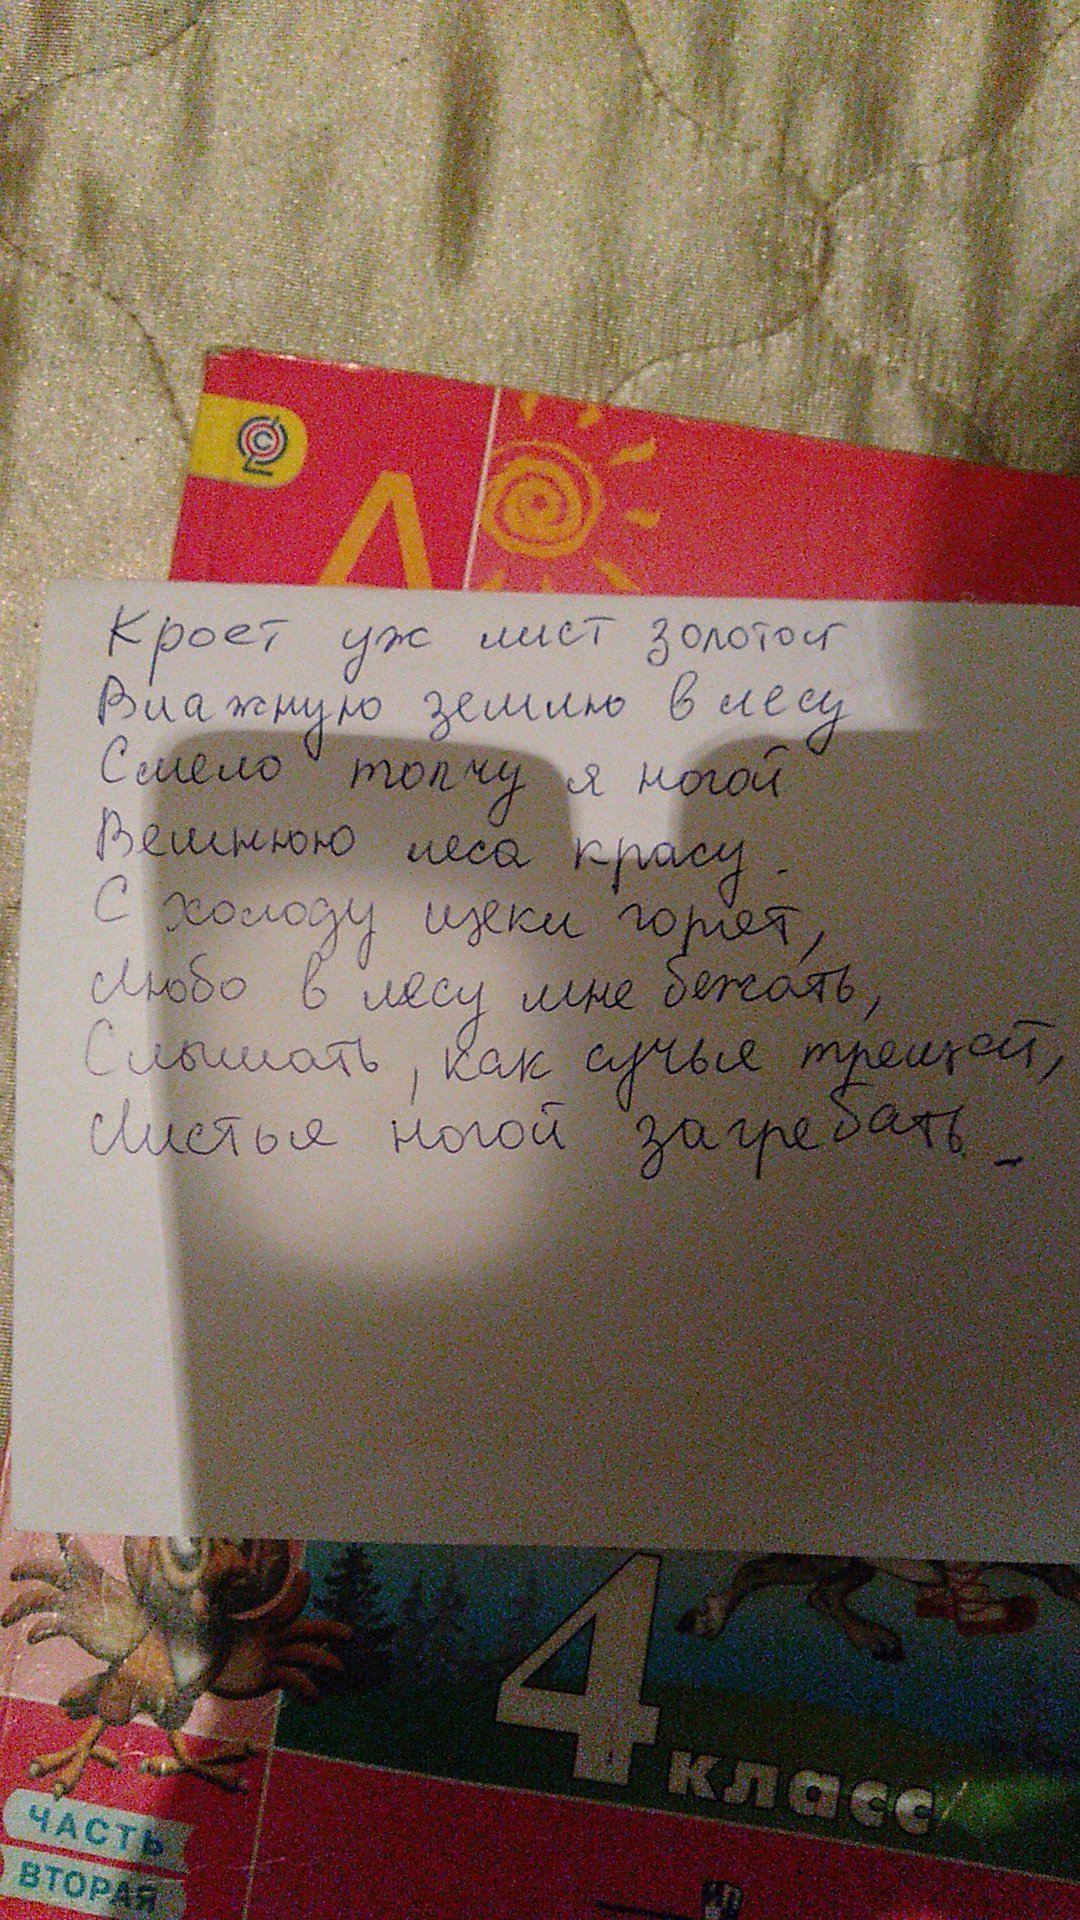 Л
Кроет уж лист золотой
Влажную землю в лесу
Смело топчу я ногой
Вешнюю леса красу.
С холоду щеки горят,
Любо в лесу мне бежать,
Слышать, как сучья трещат,
Листья ногой загребать.
4 класс
ЧАСТЬ
ВТОРАЯ